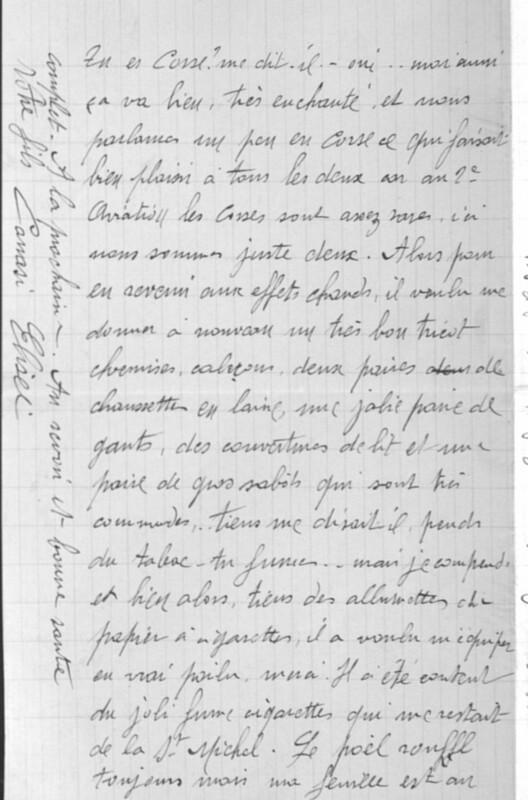 Tu es Corse? me dit-il - oui .. moi aussi
ça va bien, très enchanté, et nous
parlames un peu en Corse ce qui faisait
bien plaisir à tous les deux car au 2e
Aviation les Corses sont assez rares, ici
nous sommes juste deux. Alors pour
en revenir aux effets chauds, il voulu me
donner à nouveau un très bon tricot
chemises, caleçons, deux paires de
chaussettes en laine, une jolie paire de
gants, des couvertures de lit et une
paire de gros sabots qui sont très
commodes, tiens me disait-il, prends
du tabac - tu fumes .. mais je comprends
et bien alors, tiens des allumettes du
papier à cigarettes, il a voulu m'équiper
en vrai poilu. Il a été content
du joli fume cigarettes qui me restait
de la St Michel. Le poël ronfle
toujours mais ma feuille est au
complet. A la prochaine. Au revoir et bonne santé
Votre fils